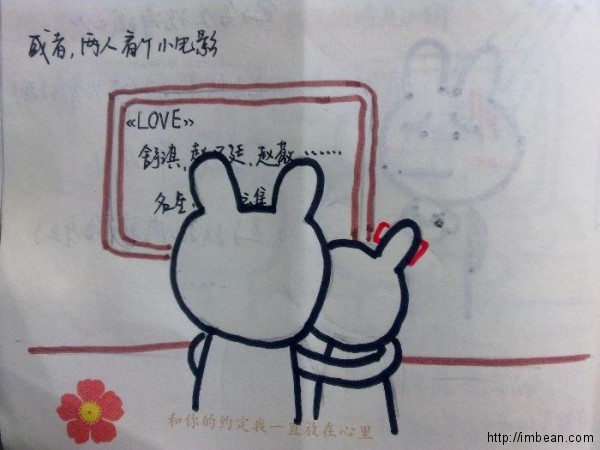 或者,两人看个小电影
《LOVE》
舒淇,赵又廷,赵薇……
名
和你的约定我一直放在心里
http://imbean.com